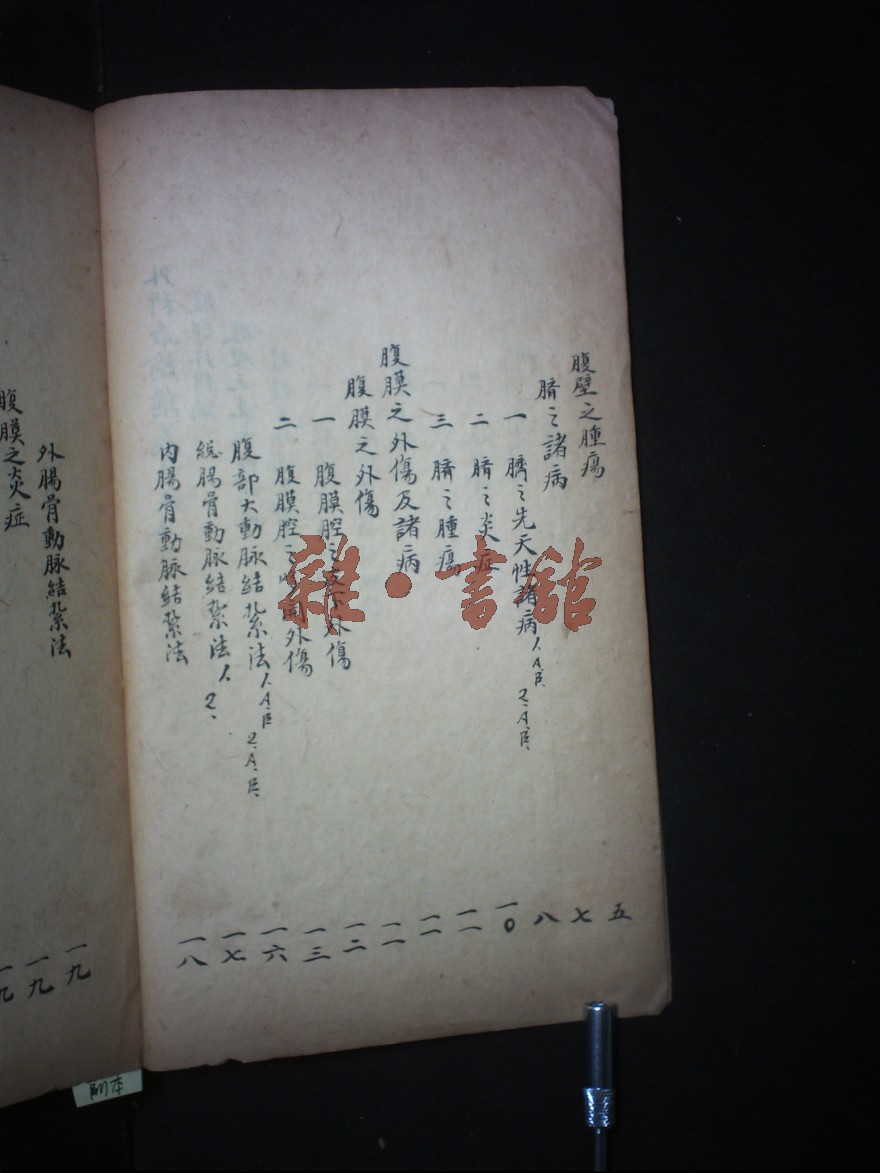 腹壁之腫瘍 五
臍之諸病 七
一 臍之先天性諸病 1.A.B. 2.A.B. 八
二 臍之炎症 一〇
三 臍之腫瘍 一一
腹膜之外傷及諸病 一一
腹膜之外傷 一一
一 腹膜腔之皮下外傷 一二
二 腹膜腔之開外傷 一三
腹部大動脉結紮法 1.A.B. 2.A.B. 一六
総腸骨動脉結紮法 1. 2. 一七
内腸骨動脉結紮法 一八
外腸骨動脉結紮法 一九
腹膜之炎症 一九
一九
雜·書館
副本